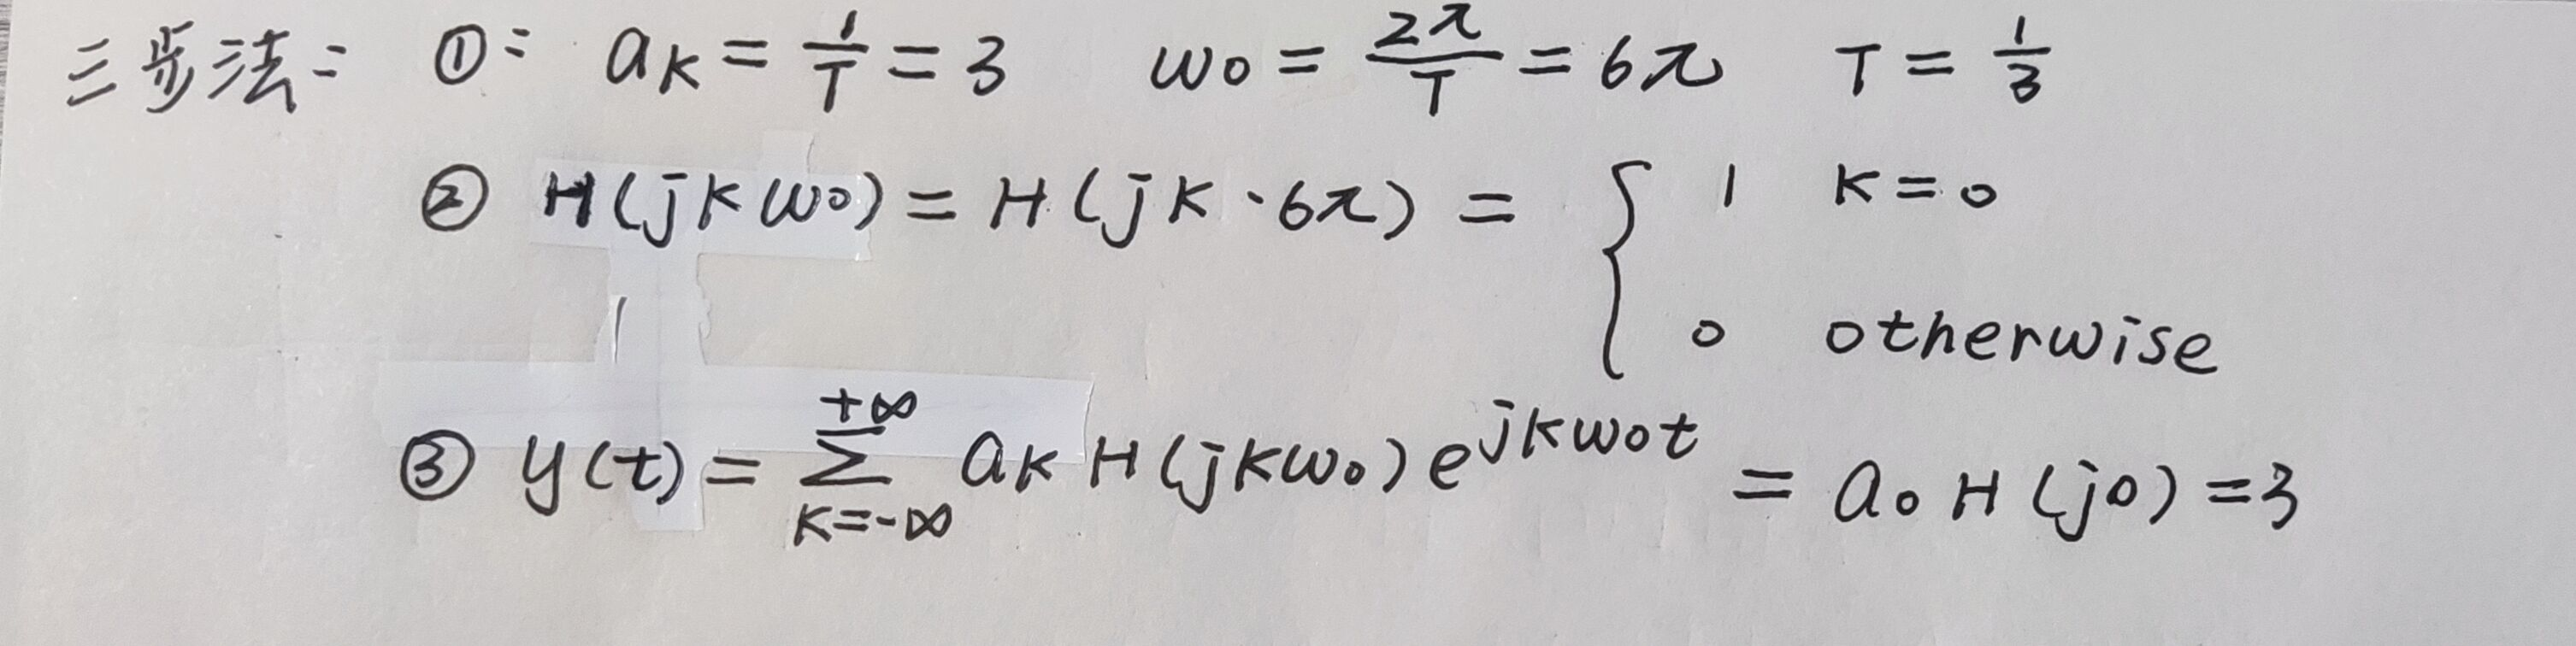 三步法: ①: aK = 1/T = 3 ω0 = 2π/T = 6π T = 1/3
② H(jKω0) = H(jK·6π) = { 1 K=0
0 otherwise
③ y(t) = ∑_{K=-∞}^{+∞} aK H(jKω0) e^{jKω0t} = a0 H(j0) = 3